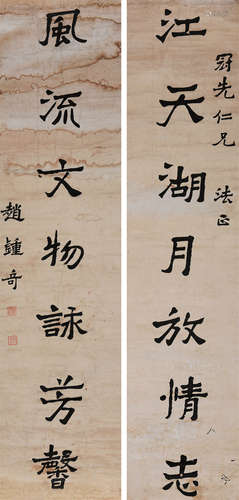 冠先仁兄 法正
江天湖月放情志
風流文物詠芳馨
趙鍾奇